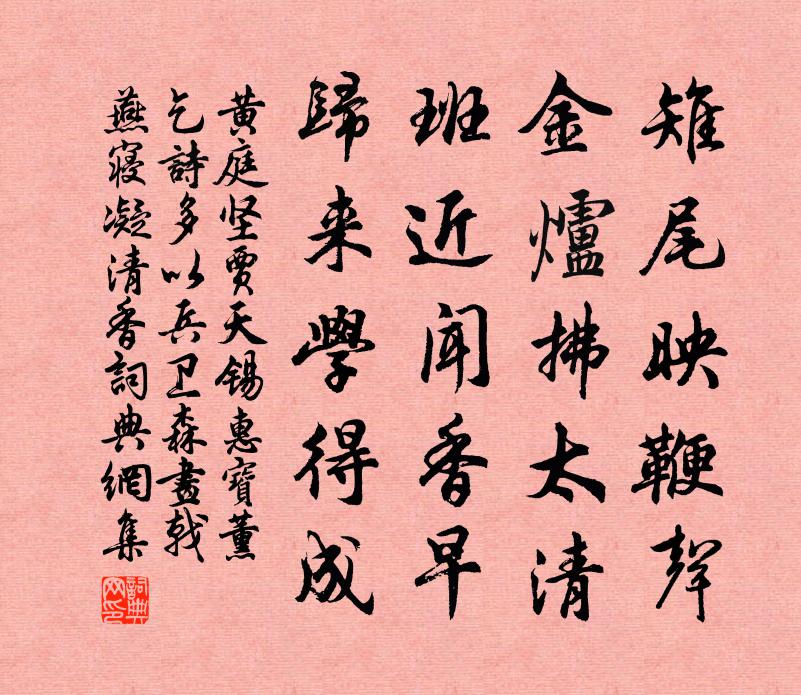 雉尾映鞭聲
金爐拂太清
班近聞香早
歸来學得成
黄庭坚賈天錫惠寶薰
乞詩多以兵卫森畫戟
燕寝凝清香詞典網集
詞典網印